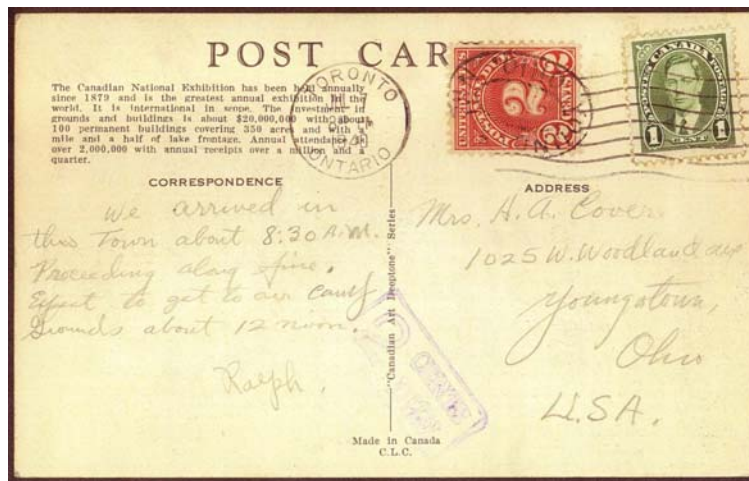 POST CAR
The Canadian National Exhibition has been held annually
since 1879 and is the greatest annual exhibition in the
world. It is international in scope. The investment in
grounds and buildings is about $20,000,000 with about
100 permanent buildings covering 350 acres and with a
mile and a half of lake frontage. Annual attendance is
over 2,000,000 with annual receipts over a million and a
quarter.
TORONTO
ONTARIO
UNITED STATES
POSTAGE DUE
2
CENTS
POSTES CANADA POSTAGE
1 CENT 1
CORRESPONDENCE
We arrived in
this Town about 8:30 A.M.
Proceeding along fine.
Expect to get to our camp
Grounds about 12 noon.
Ralph.
"Canadian Art Deeptone" Series
ADDRESS
Mrs. H. A. Cover
1025 W. Woodland ave
Youngstown,
Ohio
U.S.A.
CENTS
Made in Canada
C.L.C.